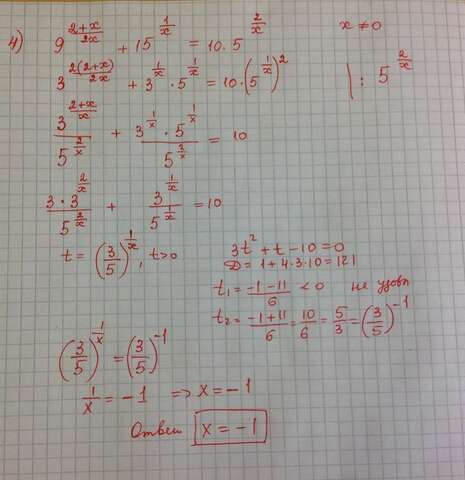 4) 9^((2+x)/(2x)) + 15^(1/x) = 10·5^(2/x)   x ≠ 0
3^(2(2+x)/(2x)) + 3^(1/x) · 5^(1/x) = 10·(5^(1/x))^2   | : 5^(2/x)
3^((2+x)/x) / 5^(2/x) + (3^(1/x) · 5^(1/x)) / 5^(2/x) = 10
(3·3^(2/x)) / 5^(2/x) + 3^(1/x) / 5^(1/x) = 10
t = (3/5)^(1/x), t>0
3t^2 + t - 10 = 0
D = 1 + 4·3·10 = 121
t₁ = (-1-11)/6 < 0 не удовл
t₂ = (-1+11)/6 = 10/6 = 5/3 = (3/5)^(-1)
(3/5)^(1/x) = (3/5)^(-1)
1/x = -1 => x = -1
Ответ x = -1